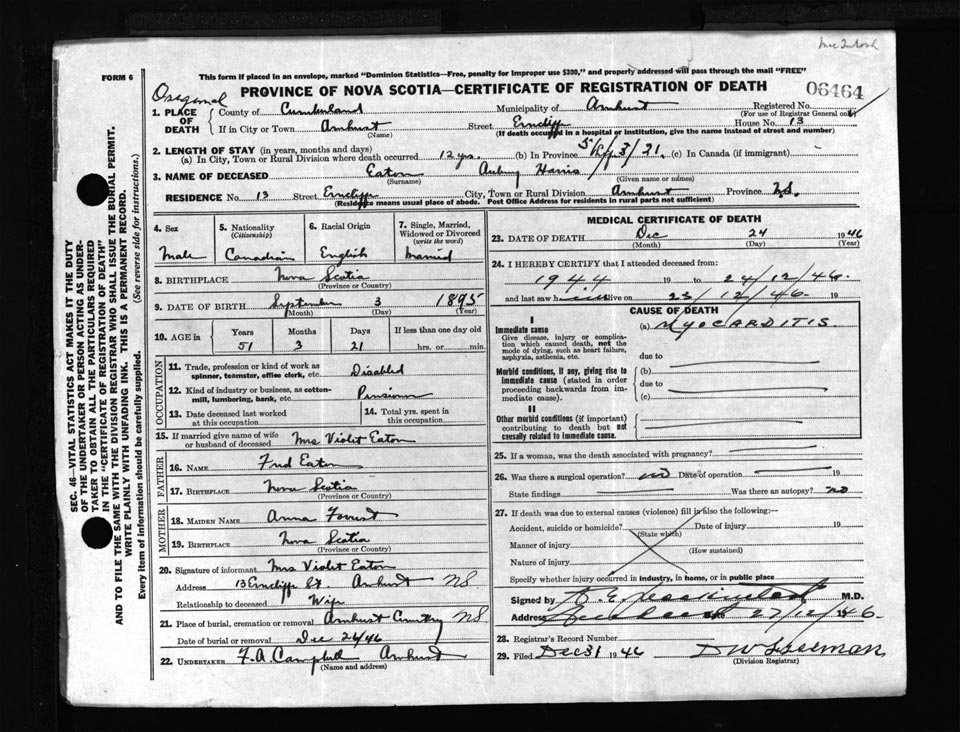 MacIntosh
FORM 6
This form if placed in an envelope, marked "Dominion Statistics—Free, penalty for improper use $300," and properly addressed will pass through the mail "FREE"
PROVINCE OF NOVA SCOTIA—CERTIFICATE OF REGISTRATION OF DEATH
06464
1. PLACE OF DEATH
County of Cumberland Municipality of Amherst Registered No.
(For use of Registrar General only)
If in City or Town Amherst Street Erncliffe House No. 13
(Name) (If death occurred in a hospital or institution, give the name instead of street and number)
2. LENGTH OF STAY (in years, months and days)
(a) In City, Town or Rural Division where death occurred 12 yrs. (b) In Province 51/3/21. (c) In Canada (if immigrant)
3. NAME OF DECEASED Eaton Aubrey Harris
(Surname) (Given name or names)
RESIDENCE No. 13 Street Erncliffe City, Town or Rural Division Amherst Province N.S.
(Residence means usual place of abode. Post Office Address for residents in rural parts not sufficient)
4. Sex
Male
5. Nationality
(Citizenship)
Canadian
6. Racial Origin
English
7. Single, Married, Widowed or Divorced
(write the word)
Married
8. BIRTHPLACE Nova Scotia
(Province or Country)
9. DATE OF BIRTH September 3 1895
(Month) (Day) (Year)
10. AGE in
Years Months Days If less than one day old
51 3 21 hrs. or min.
OCCUPATION
11. Trade, profession or kind of work as spinner, teamster, office clerk, etc. Disabled
12. Kind of industry or business, as cotton-mill, lumbering, bank, etc. Pensioner
13. Date deceased last worked at this occupation
14. Total yrs. spent in this occupation
15. If married give name of wife or husband of deceased Mrs Violet Eaton
FATHER
16. NAME Fred Eaton
17. BIRTHPLACE Nova Scotia
(Province or Country)
MOTHER
18. MAIDEN NAME Anna Forrest
19. BIRTHPLACE Nova Scotia
(Province or Country)
20. Signature of informant Mrs Violet Eaton
Address 13 Erncliffe St. Amherst NS
Relationship to deceased Wife
21. Place of burial, cremation or removal Amherst Cemetery NS
Date of burial or removal Dec 26/46
22. UNDERTAKER F.A. Campbell Amherst
(Name and address)
MEDICAL CERTIFICATE OF DEATH
23. DATE OF DEATH Dec 24 1946
(Month) (Day) (Year)
24. I HEREBY CERTIFY that I attended deceased from:
1944 19 to 24/12/46. 19
and last saw h alive on 23/12/46. 19
CAUSE OF DEATH
I
Immediate cause
Give disease, injury or complication which caused death, not the mode of dying, such as heart failure, asphyxia, asthenia, etc.
(a) MYOCARDITIS.
due to
Morbid conditions, if any, giving rise to immediate cause (stated in order proceeding backwards from immediate cause).
(b)
due to
(c)
II
Other morbid conditions (if important) contributing to death but not causally related to immediate cause.
25. If a woman, was the death associated with pregnancy?
26. Was there a surgical operation? no Date of operation 19
State findings Was there an autopsy? no
27. If death was due to external causes (violence) fill in also the following:—
Accident, suicide or homicide? Date of injury 19
(State which)
Manner of injury
(How sustained)
Nature of injury
Specify whether injury occurred in industry, in home, or in public place
Signed by M.D.
Address 27/12/46.
28. Registrar's Record Number
29. Filed Dec 31 1946
(Division Registrar)
SEC. 46—VITAL STATISTICS ACT MAKES IT THE DUTY
OF THE UNDERTAKER OR PERSON ACTING AS UNDER-
TAKER TO OBTAIN ALL THE PARTICULARS REQUIRED
IN THE "CERTIFICATE OF REGISTRATION OF DEATH"
AND TO FILE THE SAME WITH THE DIVISION REGISTRAR WHO SHALL ISSUE THE BURIAL PERMIT.
WRITE PLAINLY WITH UNFADING INK. THIS IS A PERMANENT RECORD.
Every item of information should be carefully supplied. (See reverse side for instructions.)